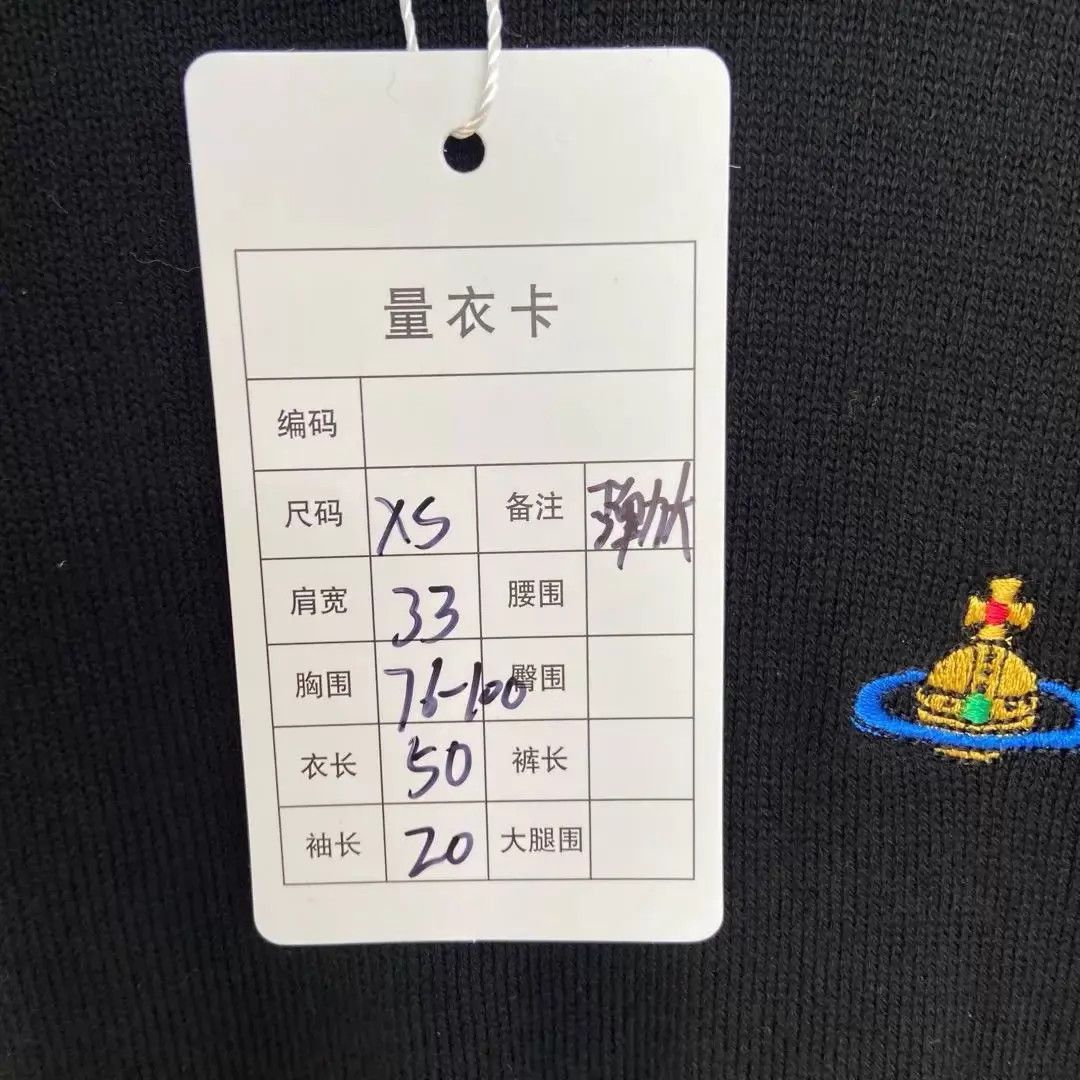 量衣卡
编码
尺码 XS 备注 弹力大
肩宽 33 腰围
胸围 76-100 臀围
衣长 50 裤长
袖长 20 大腿围